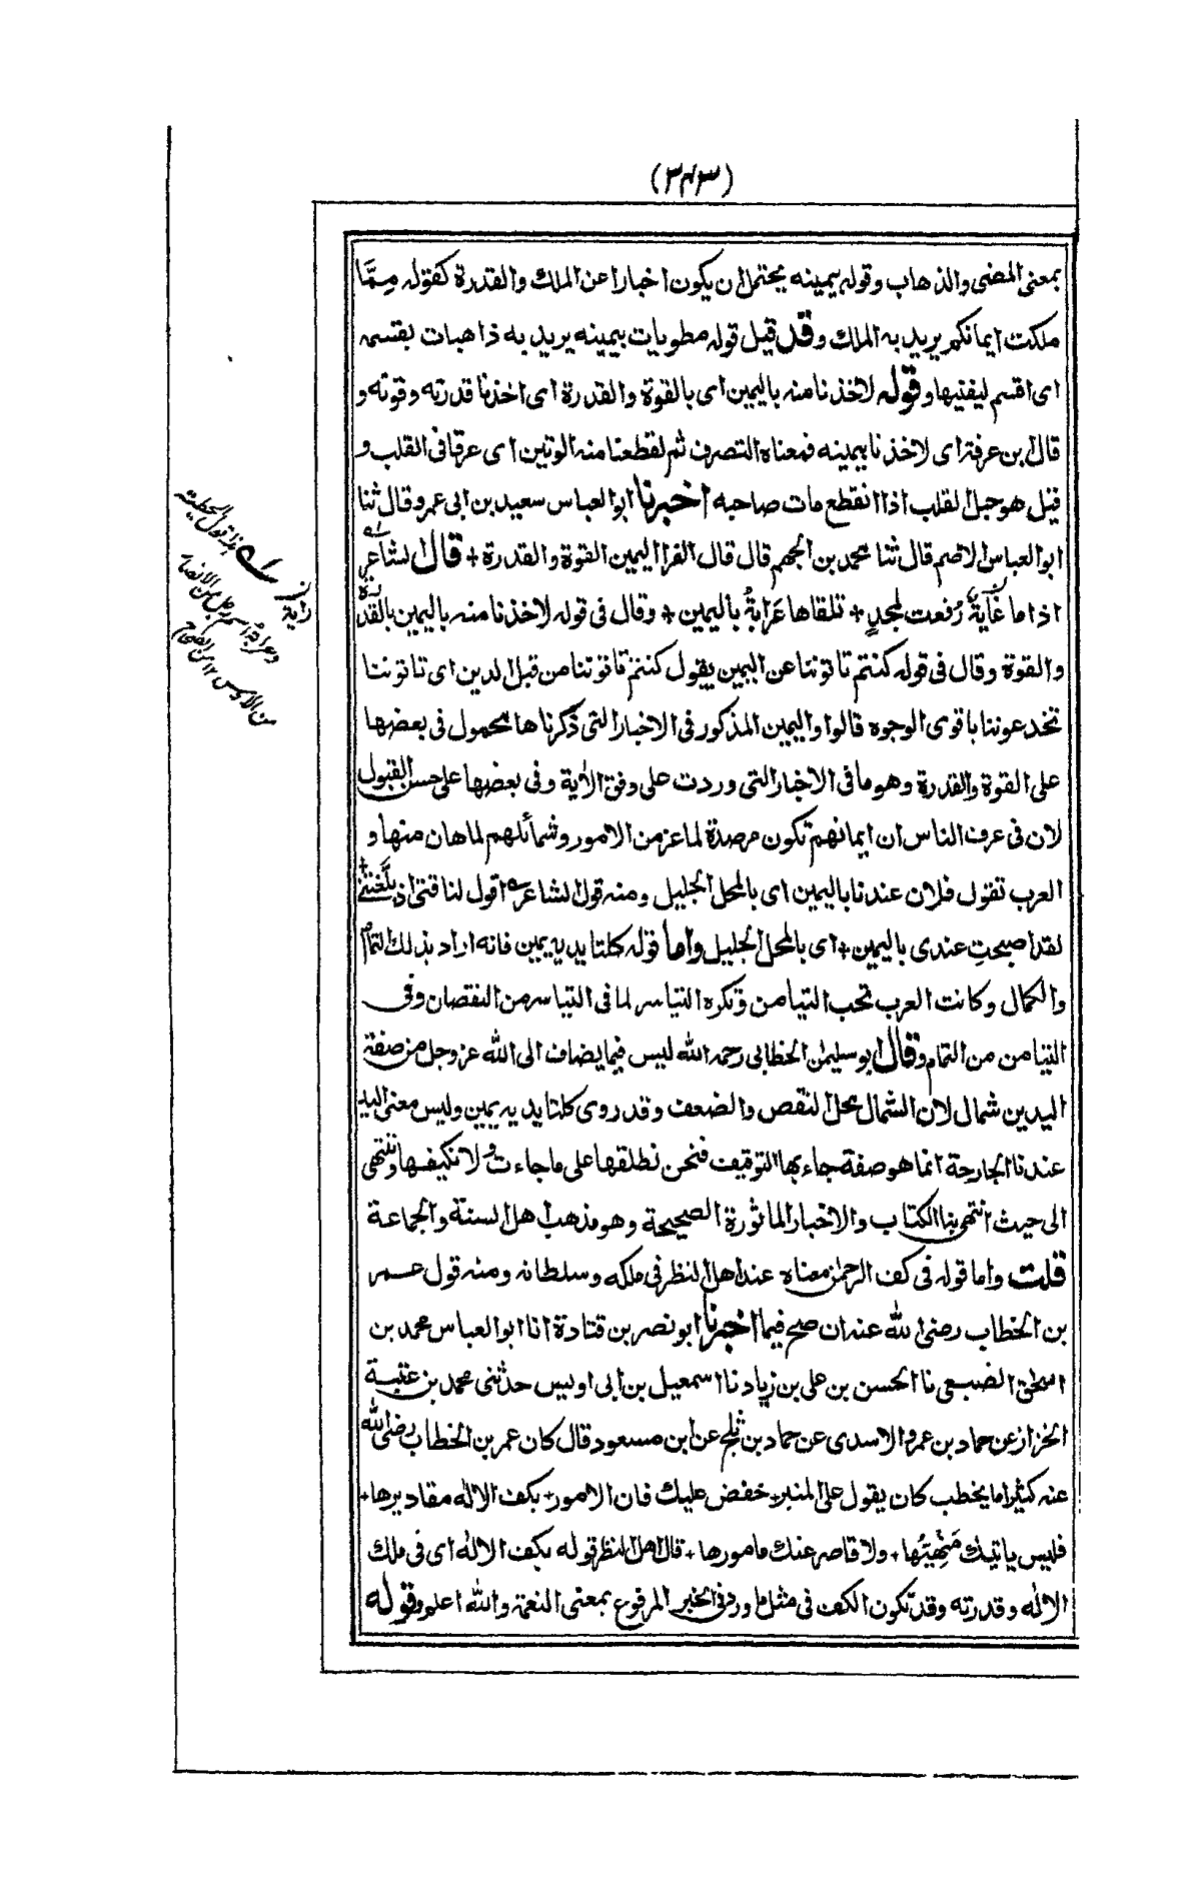 (٢٤٣)
بمعنى المضى والذهاب وقوله بيمينه يحتمل ان يكون اخبارا عن الملك والقدرة كقوله مِمَّا
ملكت ايمانكم يريد به الملك وقد قيل قوله مطويات بيمينه يريد به ذاهبات بقسمه
اى اقسم ليفنيها وقوله لاخذنا منه باليمين اى بالقوة والقدرة اى اخذنا قدرته وقوته و
قال ابن عرفة اى لاخذنا بيمينه فمعناه التصرف ثم لقطعنا منه الوتين اى عرقا فى القلب و
قيل هو حبل القلب اذا انقطع مات صاحبه اخبرنا ابو العباس سعيد بن ابى عمرو قال ثنا
ابو العباس الاصم قال ثنا محمد بن الجهم قال قال الفرا اليمين القوة والقدرة + قال الشاعر
اذا ما غَايةٌ رُفعت لمجدٍ + تلقاها عَرابةُ باليمين + وقال فى قوله لاخذنا منه باليمين بالقدرة
والقوة وقال فى قوله كنتم تاتوننا عن اليمين يقول كنتم تاتوننا من قبل الدين اى تاتوننا
تخدعوننا باقوى الوجوه قالوا واليمين المذكور فى الاخبار التى ذكرناها محمول فى بعضها
على القوة والقدرة وهو ما فى الاخبار التى وردت على وفق الآية وفى بعضها على حسن القبول
لان فى عرف الناس ان ايمانهم تكون مرصدة لما عز من الامور وشمائلهم لما هان منها و
العرب تقول فلان عندنا باليمين اى بالمحل الجليل ومنه قول الشاعر اقول لناقتى اذ بلّغتنى
لقد اصبحتِ عندى باليمين + اى بالمحل الجليل واما قوله كلتا يديه يمين فانه اراد بذلك التمام
والكمال وكانت العرب تحب التيامن وتكره التياسر لما فى التياسر من النقصان وفى
التيامن من التمام وقال ابو سليمٰن الخطابى رحمه الله ليس فيما يضاف الى الله عز وجل من صفة
اليدين شمال لان الشمال محل النقص والضعف وقد روى كلتا يديه يمين وليس معنى اليد
عندنا الجارحة انما هو صفة جاء بها التوقيف فنحن نطلقها على ما جاءت ولا نكيفها وننتهى
الى حيث انتهى بنا الكتاب والاخبار الماثورة الصحيحة وهو مذهب اهل السنة والجماعة
قلت واما قوله فى كف الرحمٰن معناه عند اهل النظر فى ملكه وسلطانه ومنه قول عمر
بن الخطاب رضى الله عنه ان صح فيما اخبرنا ابو نصر بن قتادة انا ابو العباس محمد بن
اسحٰق الضبعى نا الحسن بن على بن زياد نا اسمعيل بن ابى اويس حدثنى محمد بن عتبة
الخزاز عن حماد بن عمرو الاسدى عن حماد بن ثلج عن ابن مسعود قال كان عمر بن الخطاب رضى الله
عنه كثيرا ما يخطب كان يقول على المنبر + خفض عليك فان الامور + بكف الاله مقاديرها +
فليس ياتيك مَنْهِيّها + ولا قاصر عنك مامورها + قال اهل النظر قوله بكف الاله اى فى ملك
الاله وقدرته وقد تكون الكف فى مثل ما ورد فى الخبر المرفوع بمعنى النعمة والله اعلم وقوله